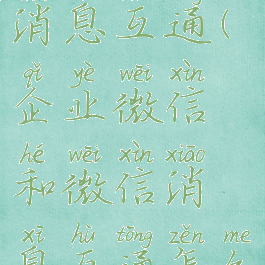 消息互通(
qǐ yè wēi xìn
企业微信
hé wēi xìn xiāo
和微信消
xī hù tōng zěn me
息互通怎么